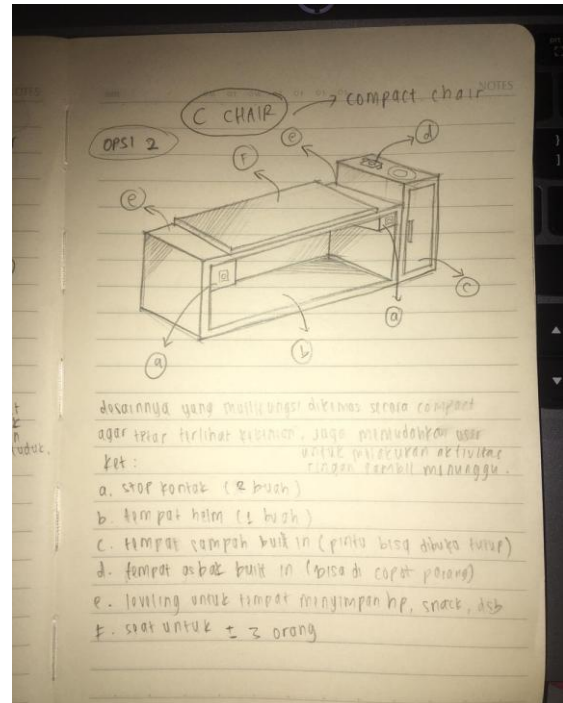 NOTES
C CHAIR → compact chair
OPSI 2
d
e
F
e
c
a
a
b
desainnya yang multifungsi dikemas secara compact
agar tetap terlihat kekinian, juga memudahkan user
untuk melakukan aktivitas
ringan sambil menunggu.
ket :
a. stop kontak (2 buah)
b. tempat helm (1 buah)
c. tempat sampah built in (pintu bisa dibuka tutup)
d. tempat asbak built in (bisa di copot pasang)
e. leveling untuk tempat menyimpan hp, snack, dsb
F. seat untuk ± 3 orang